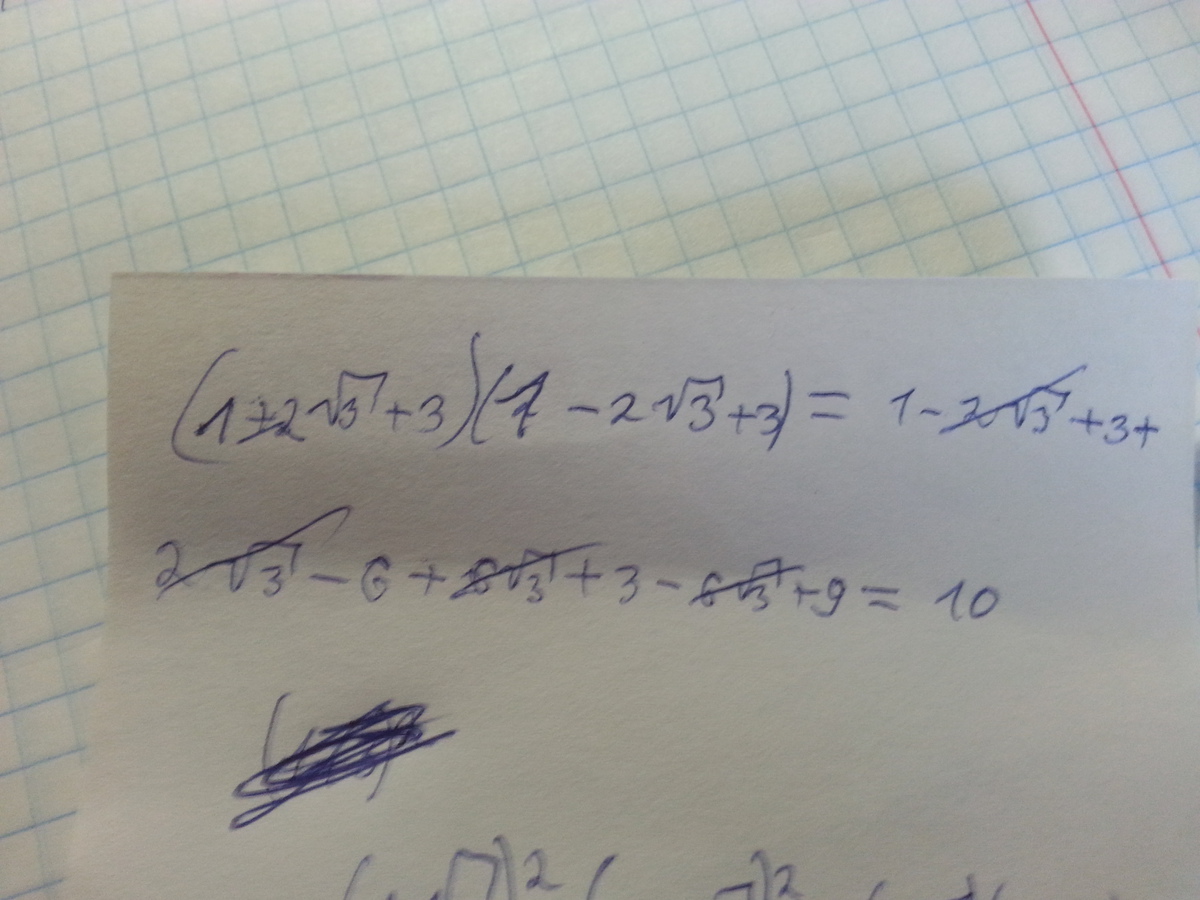 (1+2√3+3)(1-2√3+3)= 1-2√3+3+
2√3-6+6√3+3-6√3+9= 10